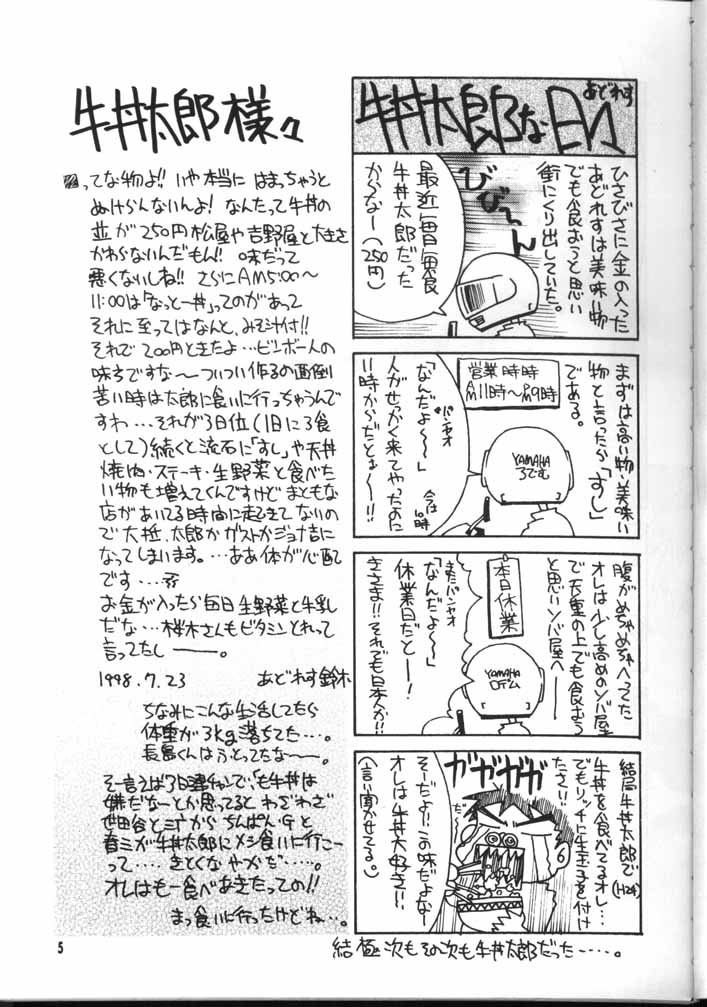 あどれす
牛丼太郎な日々
ひさびさに金の入った
あどれすは美味い物
でも食おうと思い
街にくり出していた。
びびーーん
最近毎日毎食
牛丼太郎だった
からなー(250円)
まずは高い物・美味い
物と言ったら「すし」
である。
営業時時
AM11時〜PM9時
YAMAHA
3でむ
パンヤオ
「なんだよ〜〜」
人がせっかく来てやったのに
11時からだとぉ〜!!
今は10時
腹がめちゃめちゃへってた
オレは少し高めのソバ屋
で天重の上でも食おう
と思いソバ屋へー
本日休業
YAMAHA
ロデム
またパンヤオ
「なんだよ〜〜」
休業日だとー!
きさま!!それでも日本人か!!
結局牛丼太郎で
牛丼を食べてるオレ…(H24)
でもリッチに生玉子を付け
たさ!!
ガガガガ
そーだよ!!この味だよな〜
オレは牛丼大好き!!
(言い聞かせてる。)
結極次もその次も牛丼太郎だった……。
牛丼太郎様々
ってな物よ!!いや本当にはまっちゃうと
ぬけらんないんよ!なんたって牛丼の
並が250円松屋や吉野屋と大きさ
かわらないんだもん!!味だって
悪くないしね!!さらにAM5:00〜
11:00は「なっとー丼」ってのがあって
それに至ってはなんと、みそ汁付!!
それで200円ときたよ…ビンボー人の
味方ですな〜ついつい作るの面倒
苦い時は太郎に食いに行っちゃうんで
すわ…それが3日位(1日に3食
として)続くと流石に「すし」や天丼
焼肉・ステーキ・生野菜と食べた
い物も増えてくんですけどまともな
店があいてる時間に起きてないの
で大抵、太郎かガストかジョナ吉に
なってしまいます。…ああ体が心配
です…
お金が入ったら毎日生野菜と牛乳
だな…桜木さんもビタミンとれって
言ってたし――。
1998.7.23 あどれす鈴木
ちなみにこんな生活してたら
体重が3kg落ちてた…。
長島くんはふとってたな〜〜。
そー言えば3日連チャンで、も牛丼は
嫌だなーとか思ってると、わざわざ
世田谷と三丁からちんぱん・Gと
春ミが牛丼太郎にメシ食いに行こー
って……きとくなやからだ……。
オレはもー食べあきたっての!!
まっ食いに行ったけどね…。
5